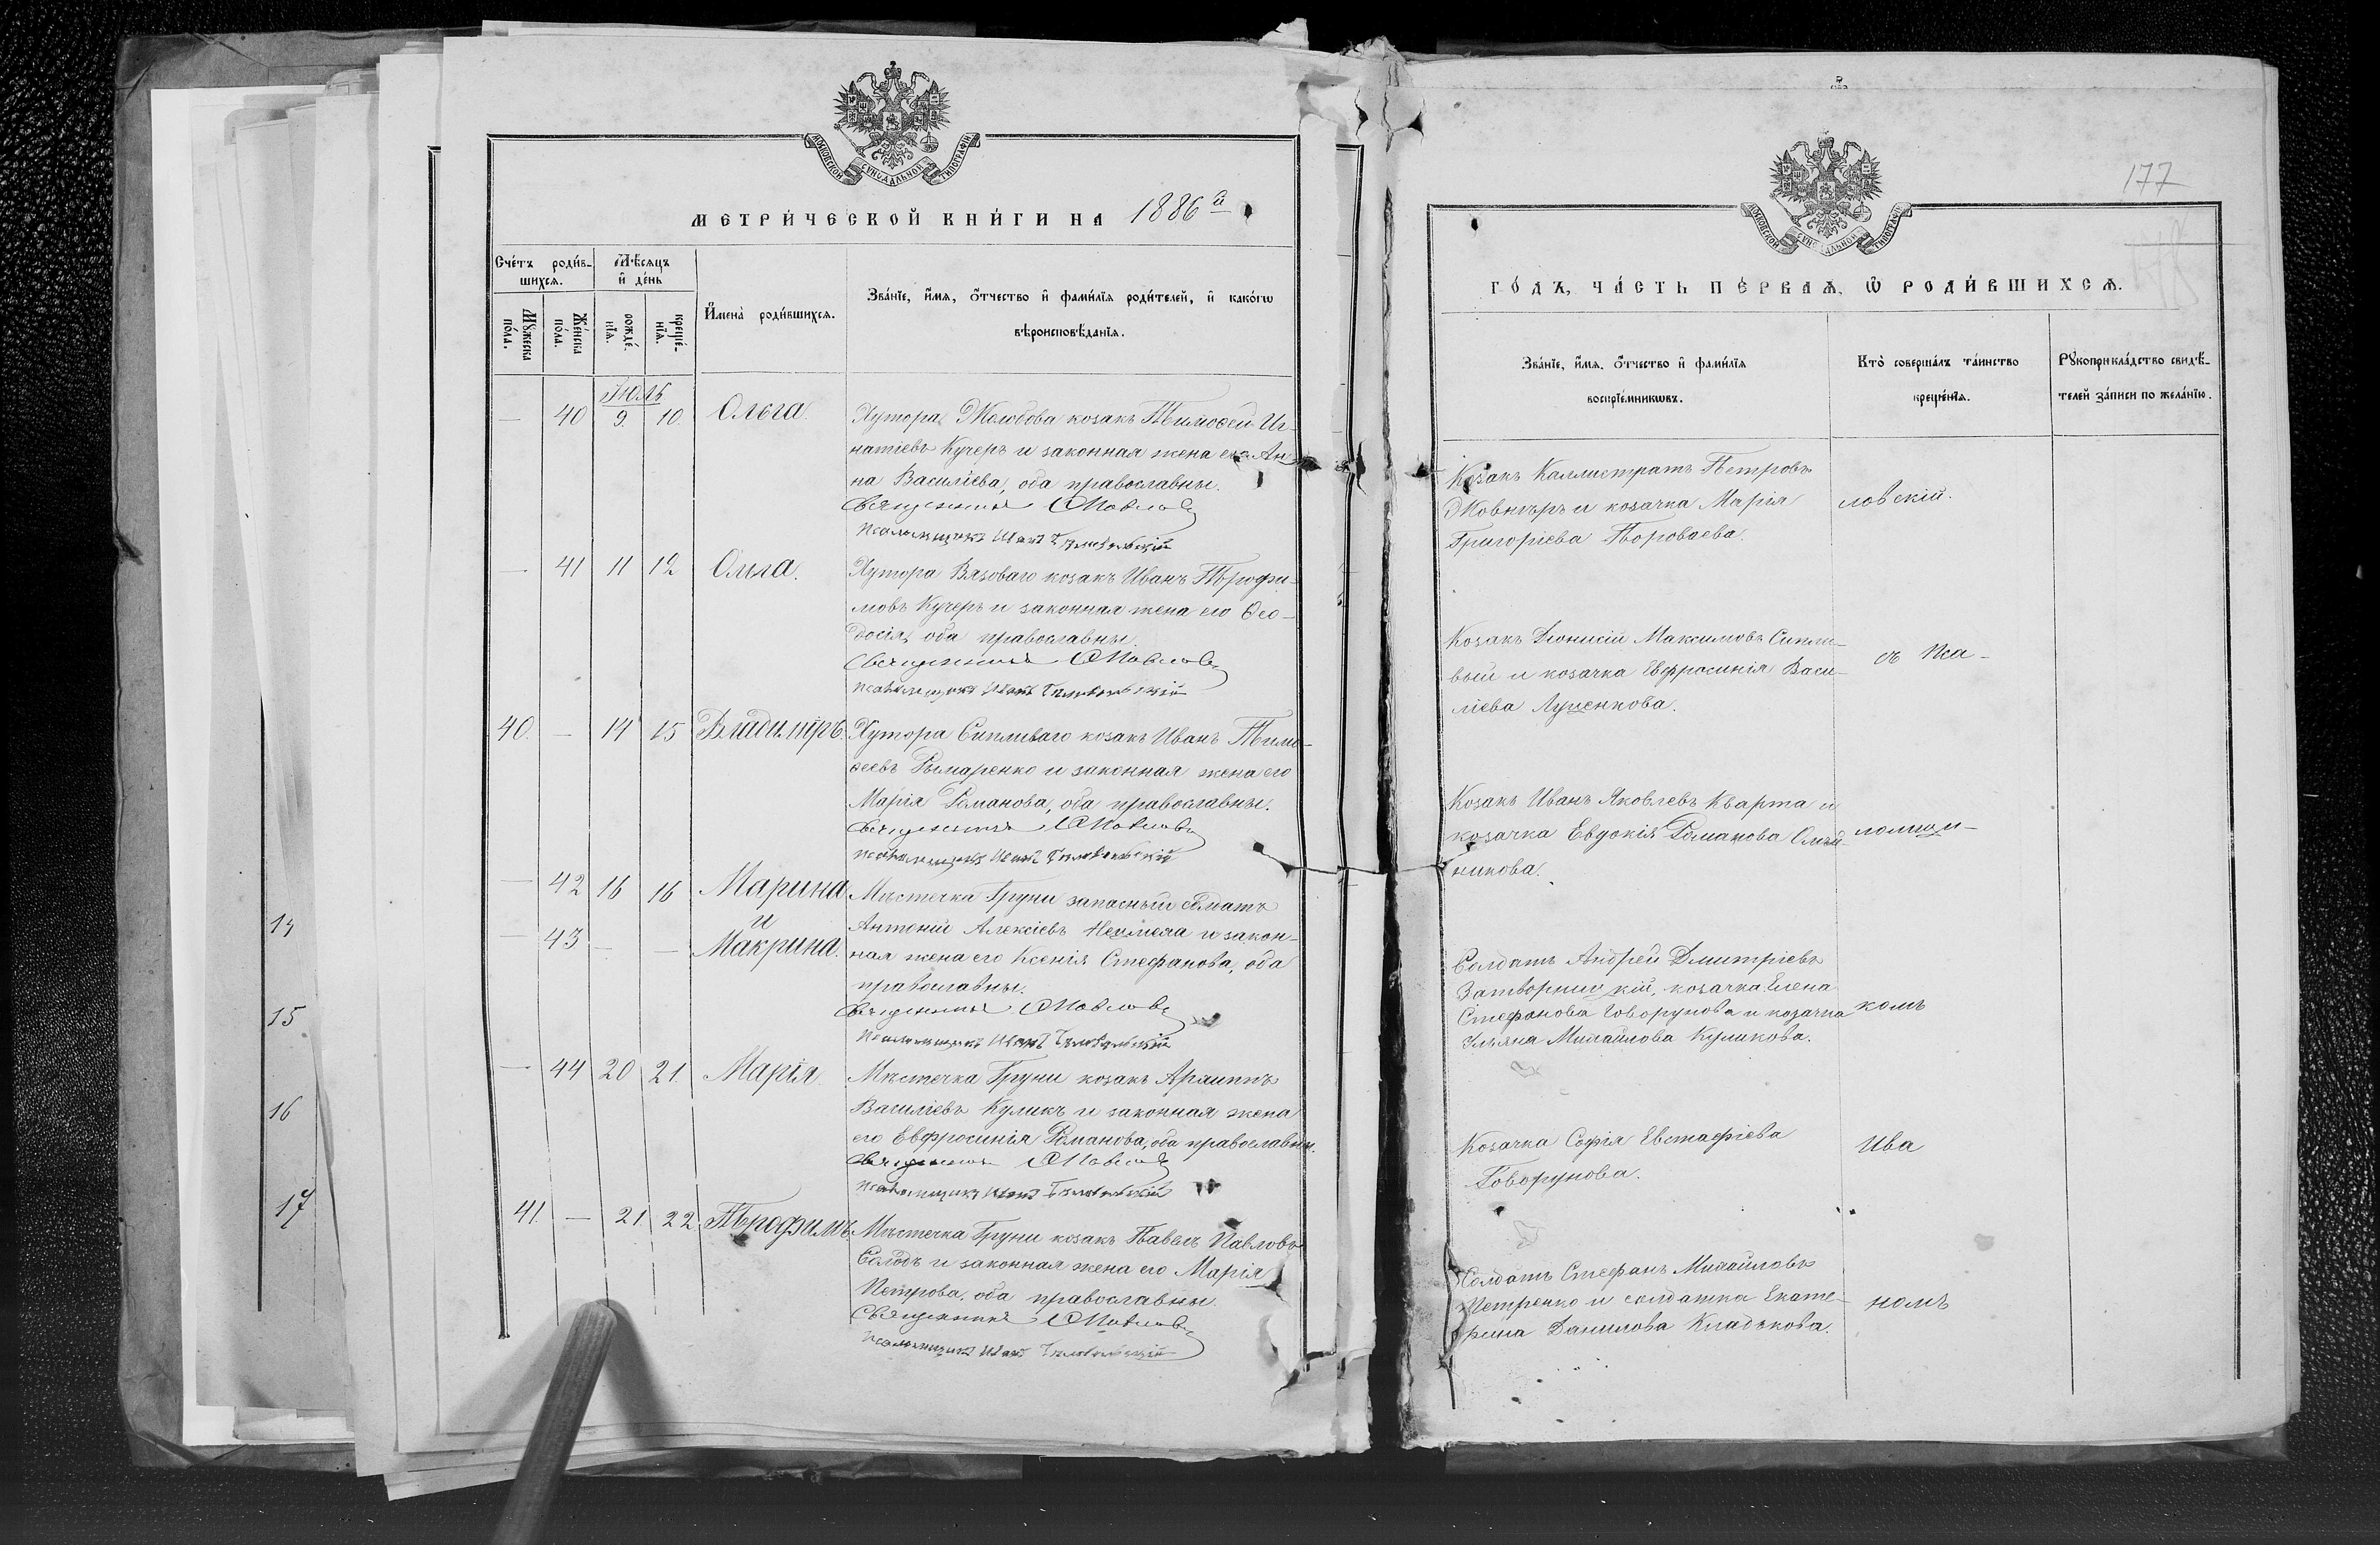 МОСКОВСКОЙ СѴНОДАЛЬНОЙ ТИПОГРАФІИ
МЕТРИ́ЧЕСКОЙ КНИ́ГИ НА 1886й
Сче́тъ роди́в-
шихся.
Мѣ́сяцъ
и҆ де́нь
Мꙋ́жеска
по́ла.
Же́нска
по́ла.
рожде́-
нїя.
креще́-
нїя.
И҆мена̀ роди́вшихся.
Зва́нїе, и҆́мя, ѻ҆́тчество и҆ фами́лїя роди́телей, и҆ како́гѡ
вѣроисповѣ́данїя.
Іюль
— 40 9 10 Ольга.
Хутора Жолобова козакъ Тимоѳей Иг-
натіевъ Кучеръ и законная жена его Ан-
на Василіева, оба православны.
Священникъ
Псаломщикъ Иванъ
— 41 11 12 Ольга.
Хутора Вязоваго козакъ Иванъ Трофи-
мовъ Кучеръ и законная жена его Ѳео-
досія, оба православны.
Священникъ
Псаломщикъ Иванъ
40. — 14 15 Владиміръ.
Хутора Сипливаго козакъ Иванъ Тимо-
ѳеевъ Рымаренко и законная жена его
Марія Романова, оба православны.
Священникъ
Псаломщикъ Иванъ
— 42 16 16 Марина
и
— 43 — — Макрина.
Мѣстечка Груни запасный солдатъ
Антоній Алексіевъ и закон-
ная жена его Ксенія Стефанова, оба
православны.
Священникъ
Псаломщикъ Иванъ
— 44 20 21 Марія
Мѣстечка Груни козакъ Архиппъ
Василіевъ Куликъ и законная жена
его Евфросинія Романова, оба православны.
Священникъ
Псаломщикъ Иванъ
41. — 21 22 Трофимъ
Мѣстечка Груни козакъ Павелъ Павловъ
Солодъ и законная жена его Марія
Петрова, оба православны.
Священникъ
Псаломщикъ Иванъ
14
15
16
17
177
МОСКОВСКОЙ СѴНОДАЛЬНОЙ ТИПОГРАФІИ
ГО́ДЪ, ЧА́СТЬ ПЕ́РВАЯ, Ѡ РОДИ́ВШИХСЯ.
Зва́нїе, и҆́мя, ѻ҆́тчество и҆ фами́лїя
воспрїе́мникѡвъ.
Кто̀ соверша́лъ та́инство
креще́нїя.
Рꙋкоприкла́дство свидѣ́-
телей за́писи по жела́нїю.
Козакъ Каллистратъ Петровъ
Жовниръ и козачка Марія
Григоріева
ловскій.
Козакъ Діонисій Максимовъ Сипли-
вый и козачка Евфросинія Васи-
ліева Луценкова.
съ Пса-
Козакъ Иванъ Яковлевъ Кварта и
козачка Евдокія Романова Олѣй-
никова.
ломщи-
Солдатъ Андрей Дмитріевъ
козачка Елена
Стефанова Говорунова и козачка
Ульяна Михайлова Куликова.
комъ
Козачка Софія Евстафіева
Говорунова.
Ива
Солдатъ Стефанъ Михайловъ
Петренко и солдатка Екате-
рина Данилова Кладькова.
номъ